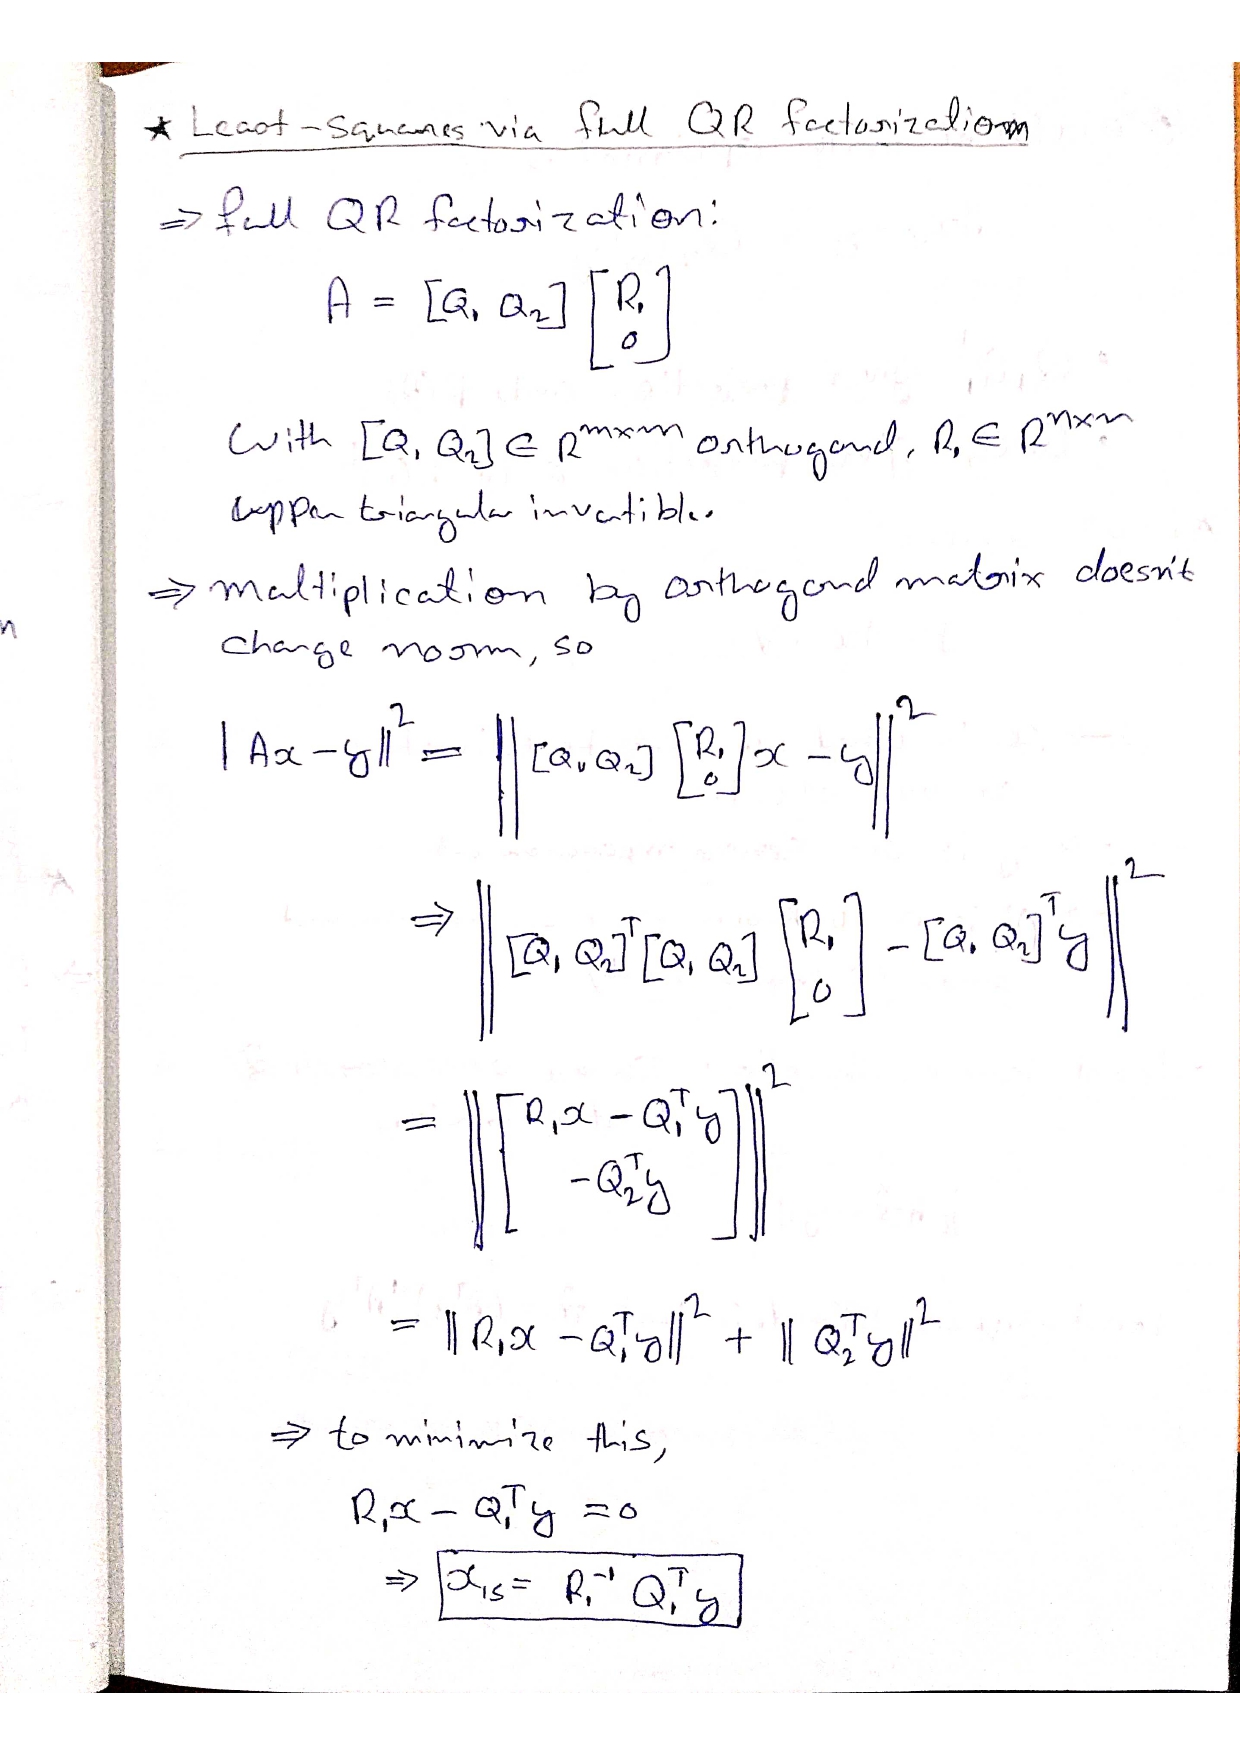 ★ Least-squares via full QR factorization
⇒ full QR factorization:
A = [Q₁ Q₂] [R₁; 0]
with [Q₁ Q₂] ∈ R^{m×m} orthogonal, R₁ ∈ R^{n×n}
upper triangular invertible.
⇒ multiplication by orthogonal matrix doesn't
change norm, so
| Ax − y‖² = ‖ [Q₁, Q₂] [R₁; 0] x − y ‖²
⇒ ‖ [Q₁ Q₂]ᵀ [Q₁ Q₂] [R₁; 0] − [Q₁ Q₂]ᵀ y ‖²
= ‖ [R₁x − Q₁ᵀy; −Q₂ᵀy] ‖²
= ‖ R₁x − Q₁ᵀy ‖² + ‖ Q₂ᵀy ‖²
⇒ to minimize this,
R₁x − Q₁ᵀy = 0
⇒ x_{ls} = R₁⁻¹ Q₁ᵀ y
n